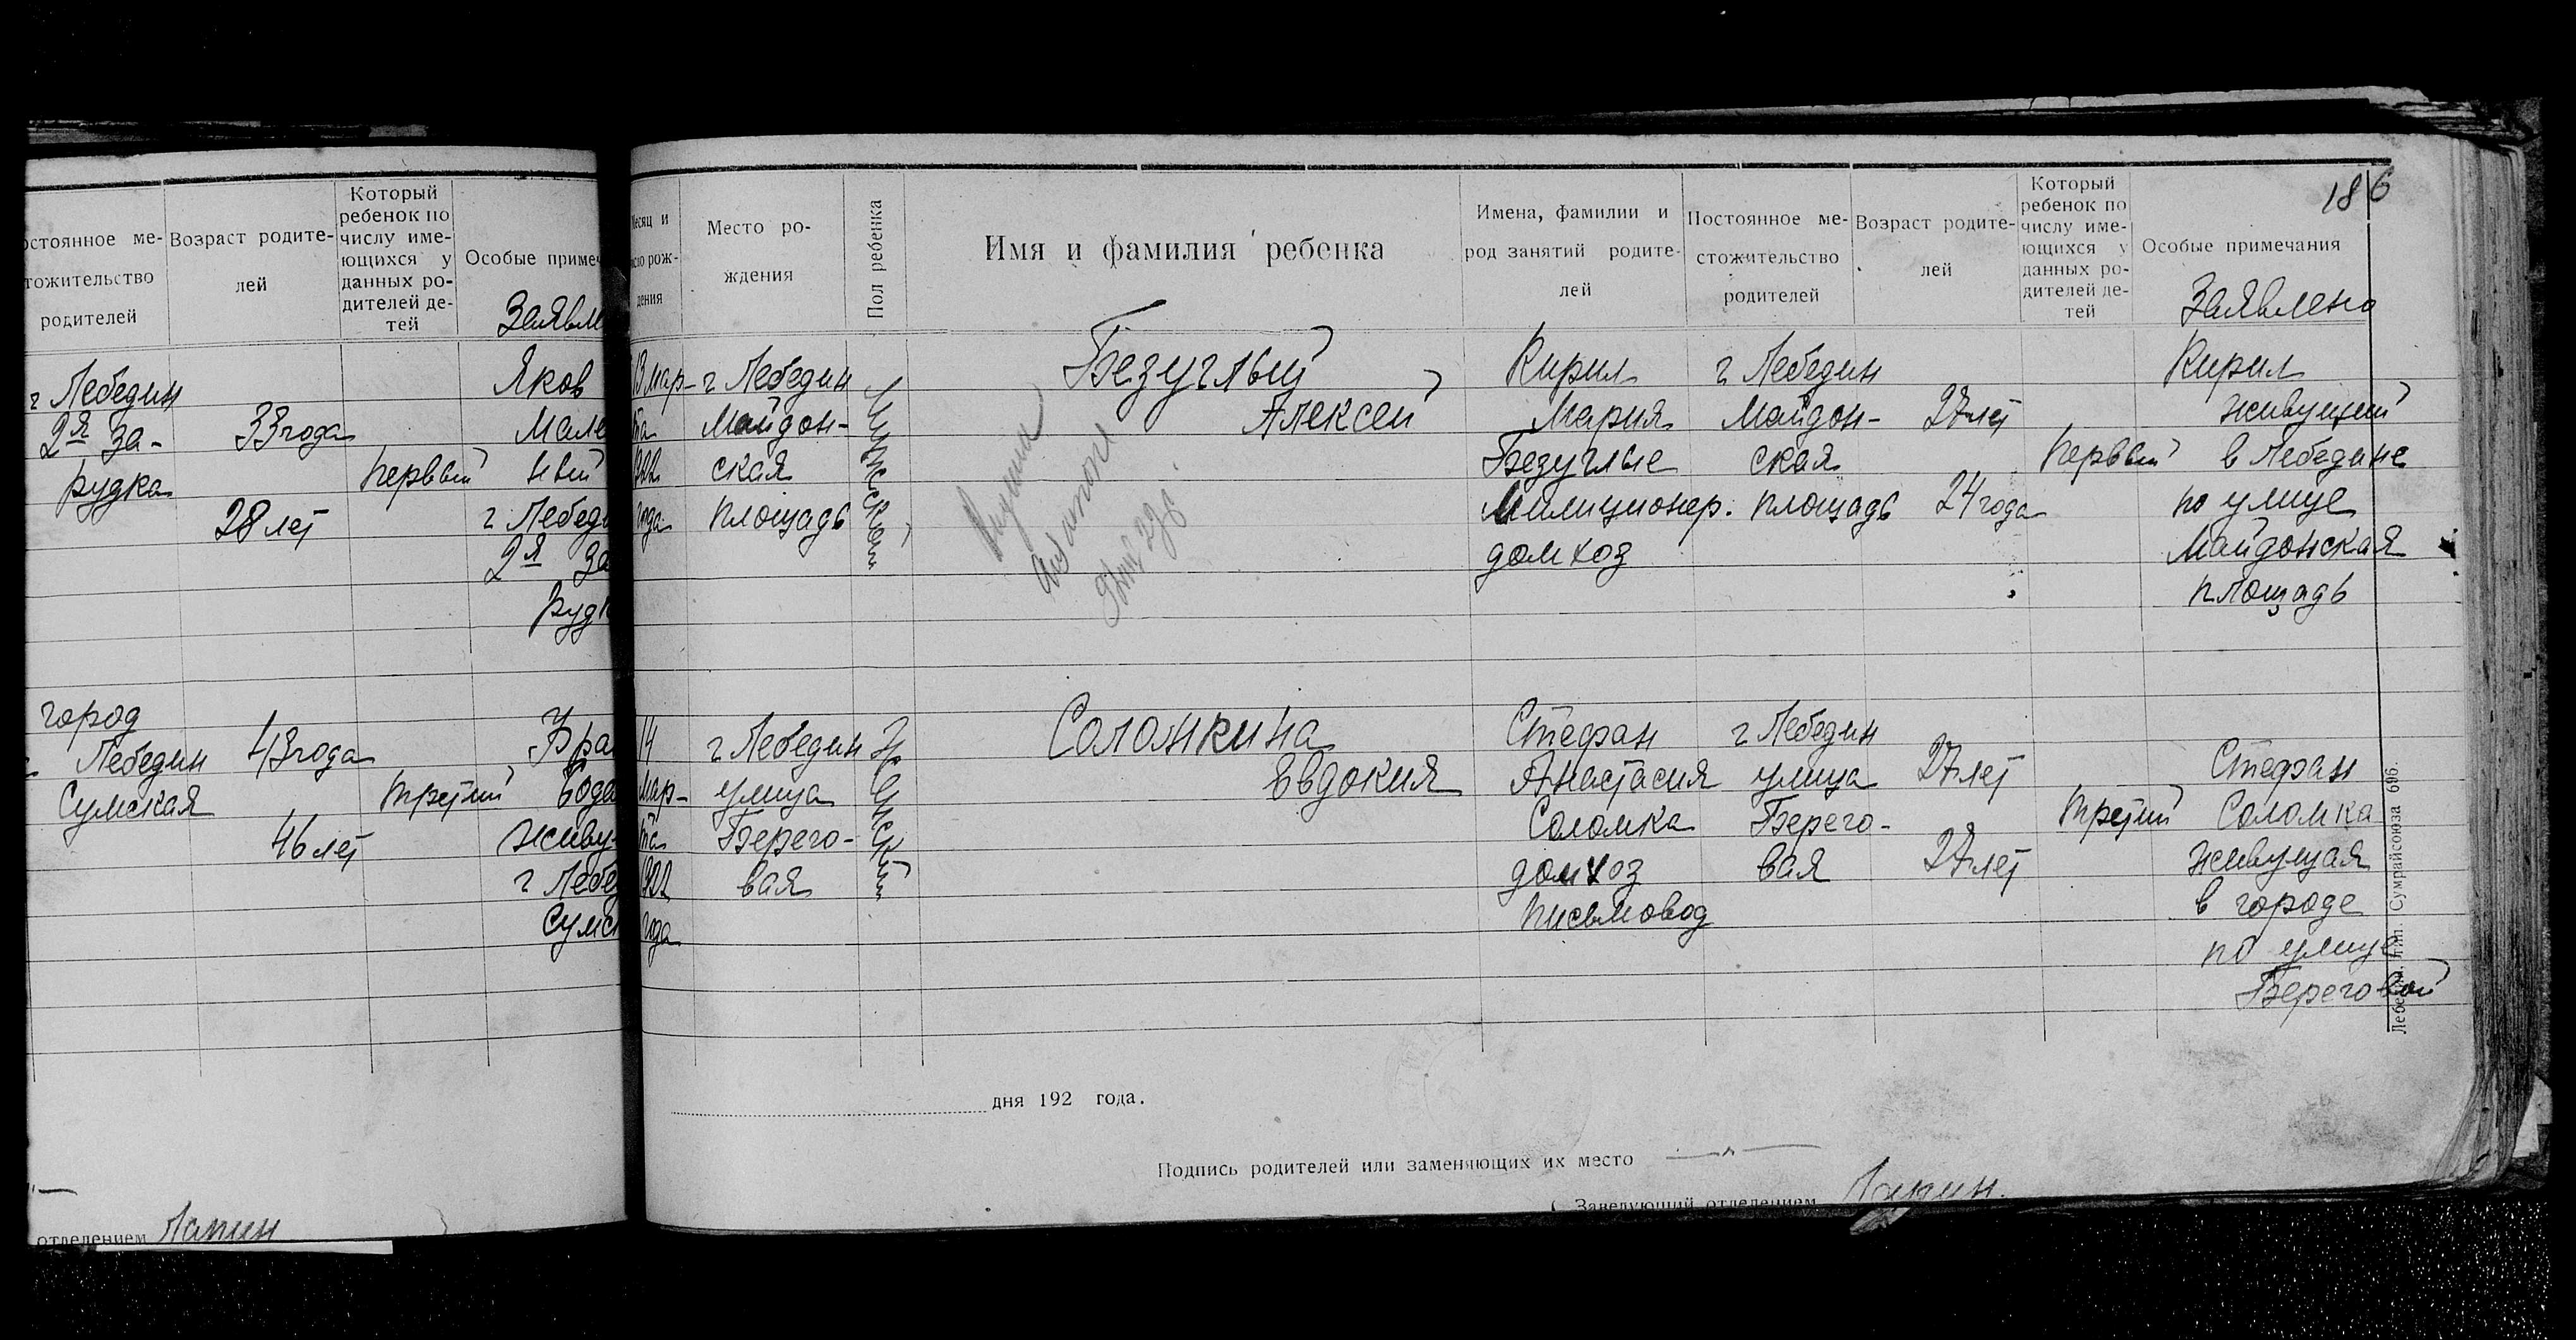 остоянное ме-
тожительство
родителей
Возраст родите-
лей
Который
ребенок по
числу име-
ющихся у
данных ро-
дителей де-
тей
Особые примеч
Заявле
г Лебедин
2я За-
рудка
33 года
28 лет
первый
Яков
Мале
ный
г Лебеди
2я За
рудк
город
Лебедин
Сумская
43 года
46 лет
третий
живу-
г Лебе
Сумс
отделением
186
Месяц и
число рож-
дения
Место ро-
ждения
Пол ребенка
Имя и фамилия ребенка
Имена, фамилии и
род занятий родите-
лей
Постоянное ме-
стожительство
родителей
Возраст родите-
лей
Который
ребенок по
числу име-
ющихся у
данных ро-
дителей де-
тей
Особые примечания
Заявлено
13 мар-
та
1922
года
г Лебедин
Майдон-
ская
площадь
Мужской
Безуглый
Алексей
Кирил
Мария
Безуглые
Милиционер.
домхоз
г Лебедин
Майдон-
ская
площадь
27 лет
24 года
первый
Кирил
живущий
в Лебедине
по улице
Майдонская
площадь
14
мар-
та
1922
года
г Лебедин
улица
Берего-
вая
Женский
Соломкина
Евдокия
Стефан
Анастасия
Соломка
домхоз
письмовод
г Лебедин
улица
Берего-
вая
27 лет
27 лет
третий
Стефан
Соломка
живущая
в городе
по улице
Береговой
дня 192 года.
Подпись родителей или заменяющих их место
Заведующий отделением
Сумрайсоюза 696.